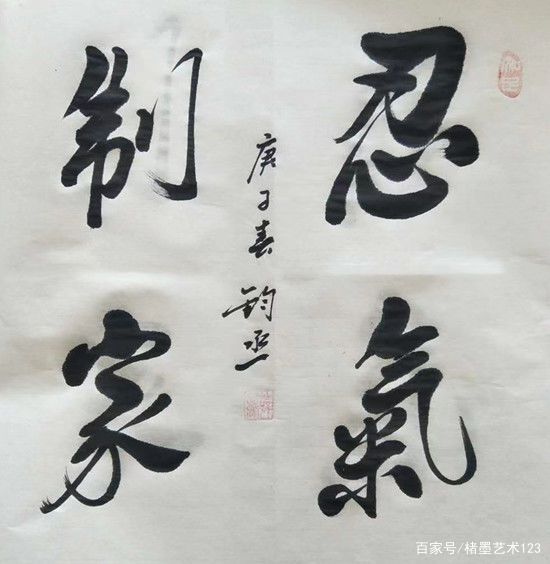 忍氣
制家
庚子春 钧丞
百家号/楮墨艺术123